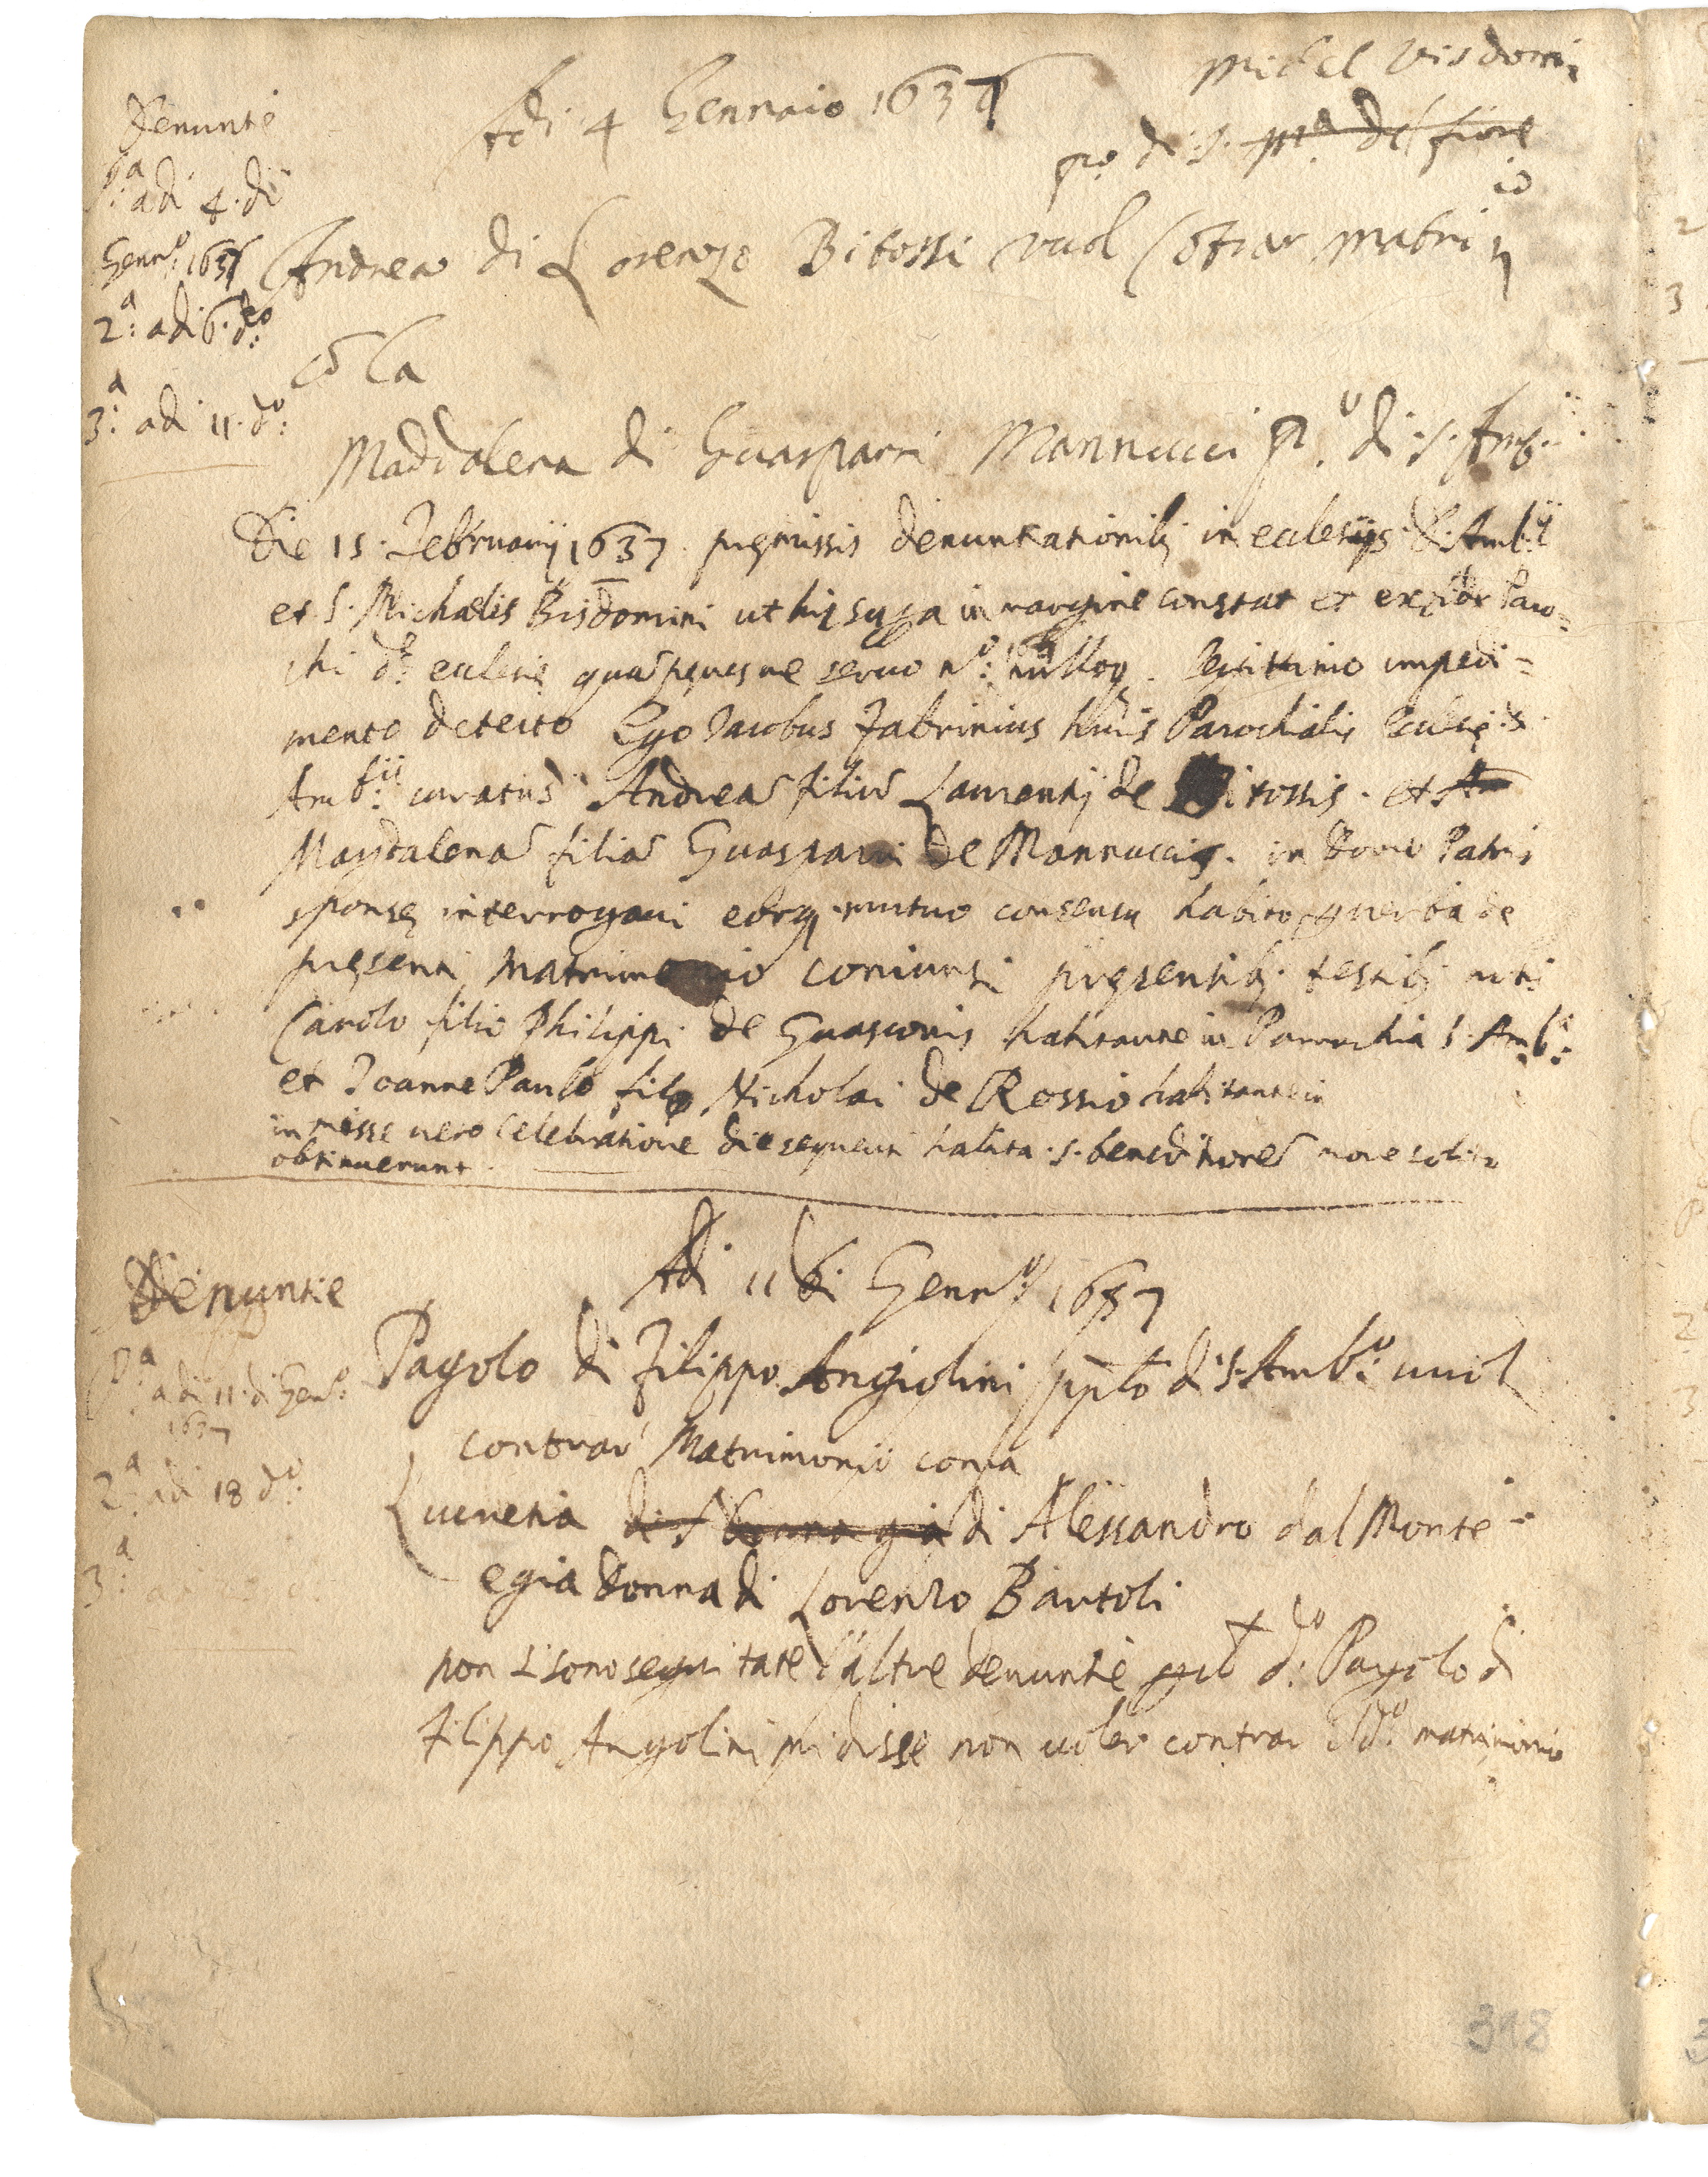 Denuntie
pa: adi 4. di
Genro: 1637
2a: adi 6. do:
3a: adi 11. do:
Adi 4 Gennaio 1637
Michel Visdomi
po di S. Ma del fiore
Andrea di Lorenzo Bitossi vuol Cotrar matrinio
cō la
Maddalena di Guasparri Mannucci Po. di S. Amb.
Die 15. Februarij 1637 premissis denuntiationibꝫ in eclesijs S. Ambij
et S. Michaelis Bisdomini ut hic supra in margine constat et ex fide Paro=
chi de eclesie quā penes me servo no: 164 nulloq. legittimo impedi=
mento detecto Ego Jacobus Fabrinius huius Parochialis Eclesie S.
Ambii: curatus Andreā filiū Laurentij de Bitossis. et
Magdalenā filiā Guasparri de Mannuccis. in domo Patris
sponse interrogavi eorq. mutuo consensu habito p verba de
presenti Matrimonio coniunxi presentibꝫ testibꝫ notis
Carolo filio Philippi de Guasconis habitante in Parochia S. Amb:
et Joanne Paulo filio Nicholai de Rossio habitante in
in misse vero Celebratione die sequenti habita. S. beneditionē more solito
obtinuerunt.
Denuntie
Pa: adi 11. di Gen:
1637
2a: adi 18 do:
3a:
Adi 11 di Gennro 1637
Pagolo di Filippo Angiolini pplo di S. Ambo: vuol
contrar Matrimonio con la
Lucretia di S donna già di Alessandro dal Monte
e gia donna di Lorenzo Bartoli
non si sono seguitate l'altre denuntie do: Pagolo di
Filippo Angolini mi disse non voler contrar do: matrimonio
318